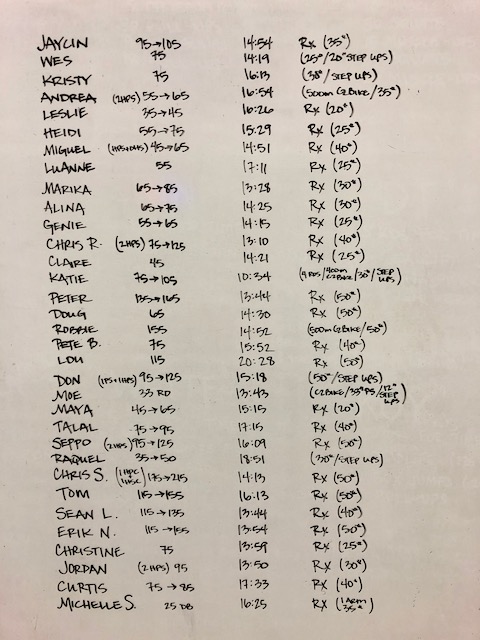 JAYLIN 95→105 14:54 Rx (35#)
WES 75 14:19 (25#/20" STEP UPS)
KRISTY 75 16:13 (38#/STEP UPS)
ANDREA (2HPS) 55→65 16:54 (500m C2BIKE/35#)
LESLIE 35→45 16:26 Rx (20#)
HEIDI 55→75 15:29 Rx (25#)
MIGUEL 45→65 14:51 Rx (40#)
LUANNE 55 17:11 Rx (25#)
MARIKA 65→85 13:28 Rx (30#)
ALINA 65→75 14:25 Rx (30#)
GENIE 55→65 14:15 Rx (25#)
CHRIS R. (2HPS) 75→125 13:10 Rx (40#)
CLAIRE 45 14:21 Rx (25#)
KATIE 75→105 10:34 (4 RDS/400m C2BIKE/30#/STEP UPS)
PETER 135→165 13:44 Rx (50#)
DOUG 65 14:30 Rx (50#)
ROBBIE 155 14:52 (500m C2BIKE/50#)
PETE B. 75 15:52 Rx (40#)
LOU 115 20:28 Rx (50#)
DON (1PS+1HPS) 95→125 15:18 (50#/STEP UPS)
MOE 33 13:43 (C2BIKE/35# PS/12" STEP UPS)
MAYA 45→65 15:15 Rx (20#)
TALAL 75→95 17:15 Rx (40#)
SEPPO (2HPS) 95→125 16:09 Rx (50#)
RAQUEL 35→50 18:51 (30#/STEP UPS)
CHRIS S. (1HPC+1HSC) 175→215 14:13 Rx (50#)
TOM 115→155 16:13 Rx (50#)
SEAN L. 115→135 13:44 Rx (40#)
ERIK N. 115→155 13:54 Rx (50#)
CHRISTINE 75 13:59 Rx (25#)
JORDAN (2HPS) 95 13:50 Rx (30#)
CURTIS 75→85 17:33 Rx (40#)
MICHELLE S. 25 DB 16:25 Rx (1 ARM 35#)